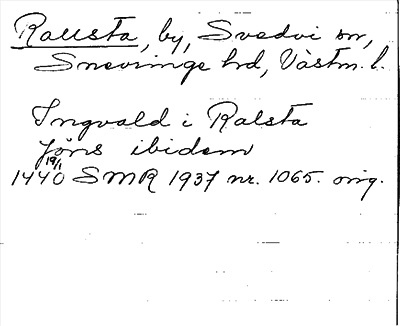 Rallsta, by, Svedvi sn,
Snevringe hd, Västm. l.
Ingvald i Ralsta
Jöns ibidem
19/1
1440 SMR 1937 nr. 1065. orig.